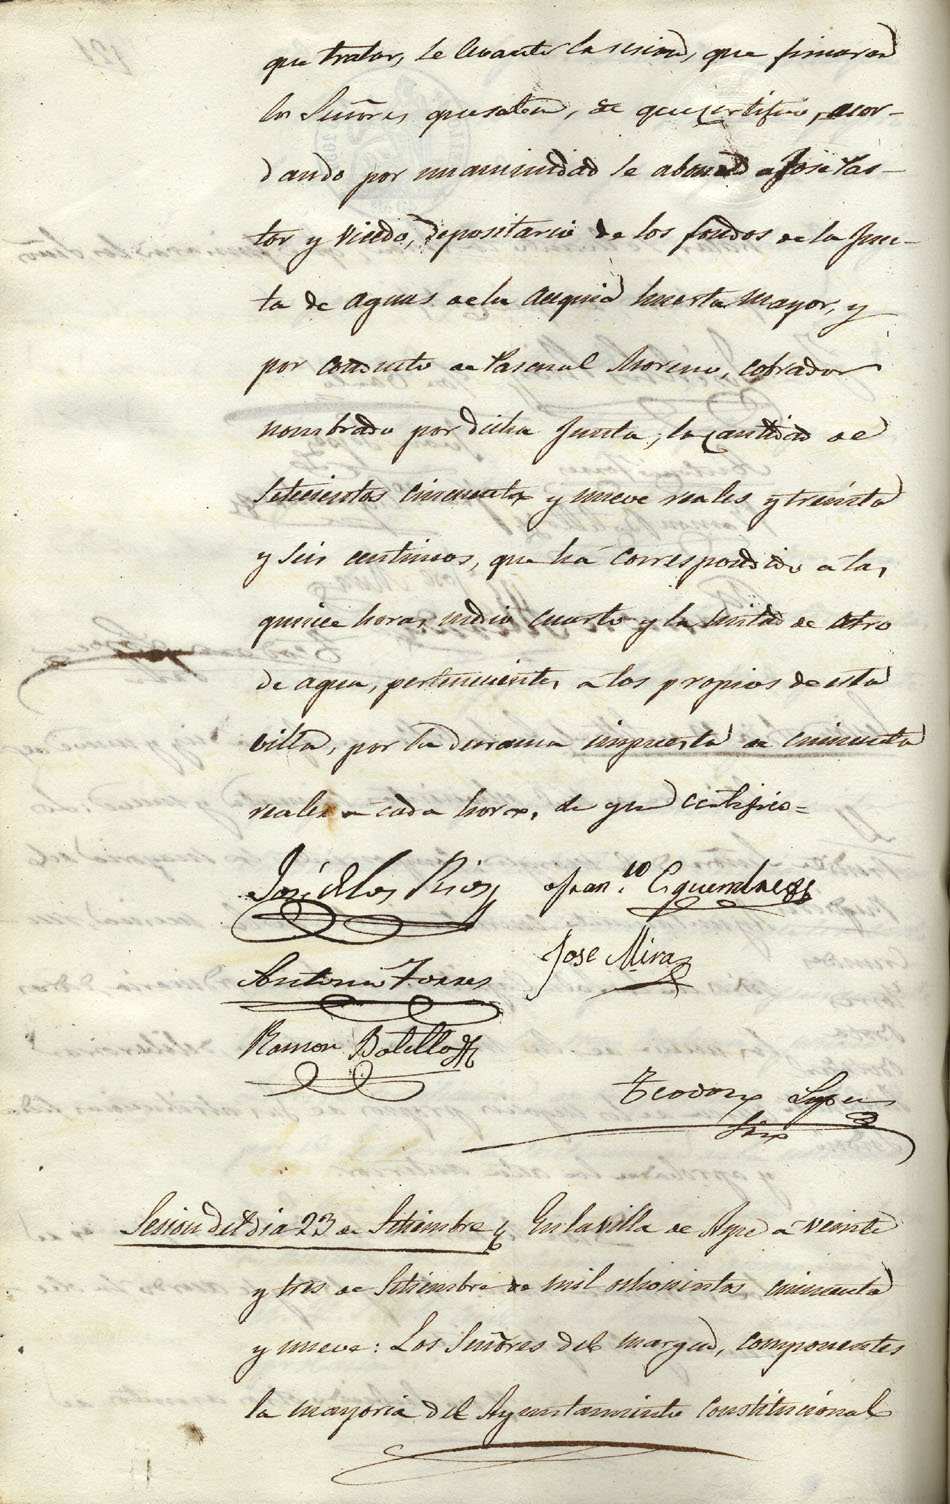 que tratar, se levantó la sesion, que firmaran
los Señores que saben, de que certifico, acor-
dando por unanimidad se abone á José Pas-
tor y Vicedo, depositario de los fondos de la Jun-
ta de aguas de la acequia huerta mayor, y
por conducto de Pascual Moreno, cobrador
nombrado por dicha Junta, la cantidad de
setecientos cincuenta y nueve reales y treinta
y seis centimos, que há correspondido á las
quince horas, medio cuarto y la mitad de otro
de agua, pertenecientes a los propios de esta
villa, por la derrama impuesta de cincuenta
reales á cada hora, de que certifico=
José de los Rios Fran.co Esquembre
Antonio Torres José Mira
Ramon Botella
Teodoro Lopez
Srio
Sesion del dia 23 de Setiembre En la villa de Aspe á veinte
y tres de Setiembre de mil ochocientos cincuenta
y nueve: Los Señores del margen, componentes
la mayoria del Ayuntamiento Constitucional